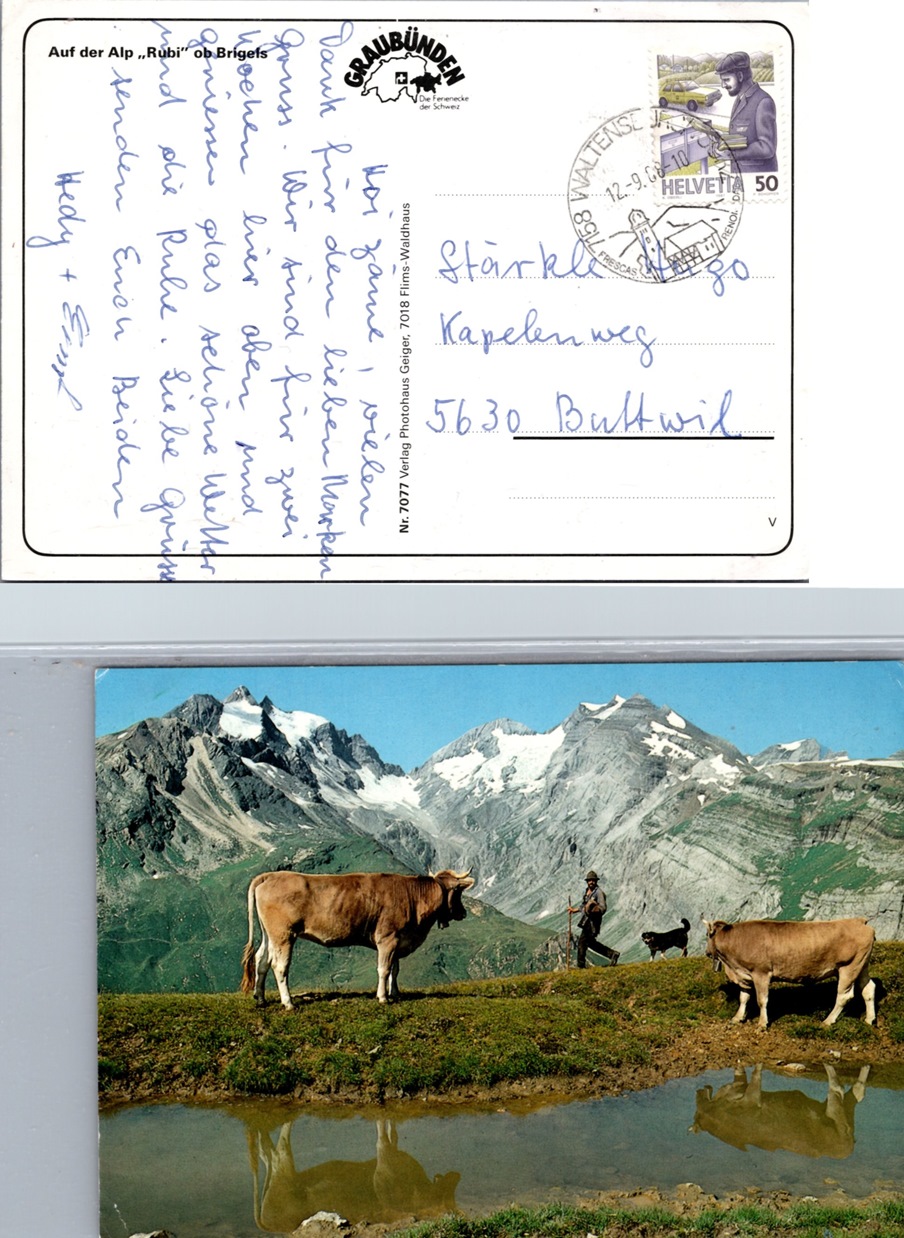 Auf der Alp „Rubi" ob Brigels
GRAUBÜNDEN
Die Ferienecke
der Schweiz
HELVETIA 50
7158 WALTENSBURG
12.-9.88-10
FRESCAS
Hoi zäme, vielen
Dank für den lieben Marken
Gruss. Wir sind für zwei
Wochen hier oben und
geniessen das schöne Wetter
und die Ruhe. Liebe Grüsse
senden Euch Beiden
Hedy + Ernst
Nr. 7077 Verlag Photohaus Geiger, 7018 Flims-Waldhaus
Stärkle Hugo
Kapelenweg
5630 Buttwil
V